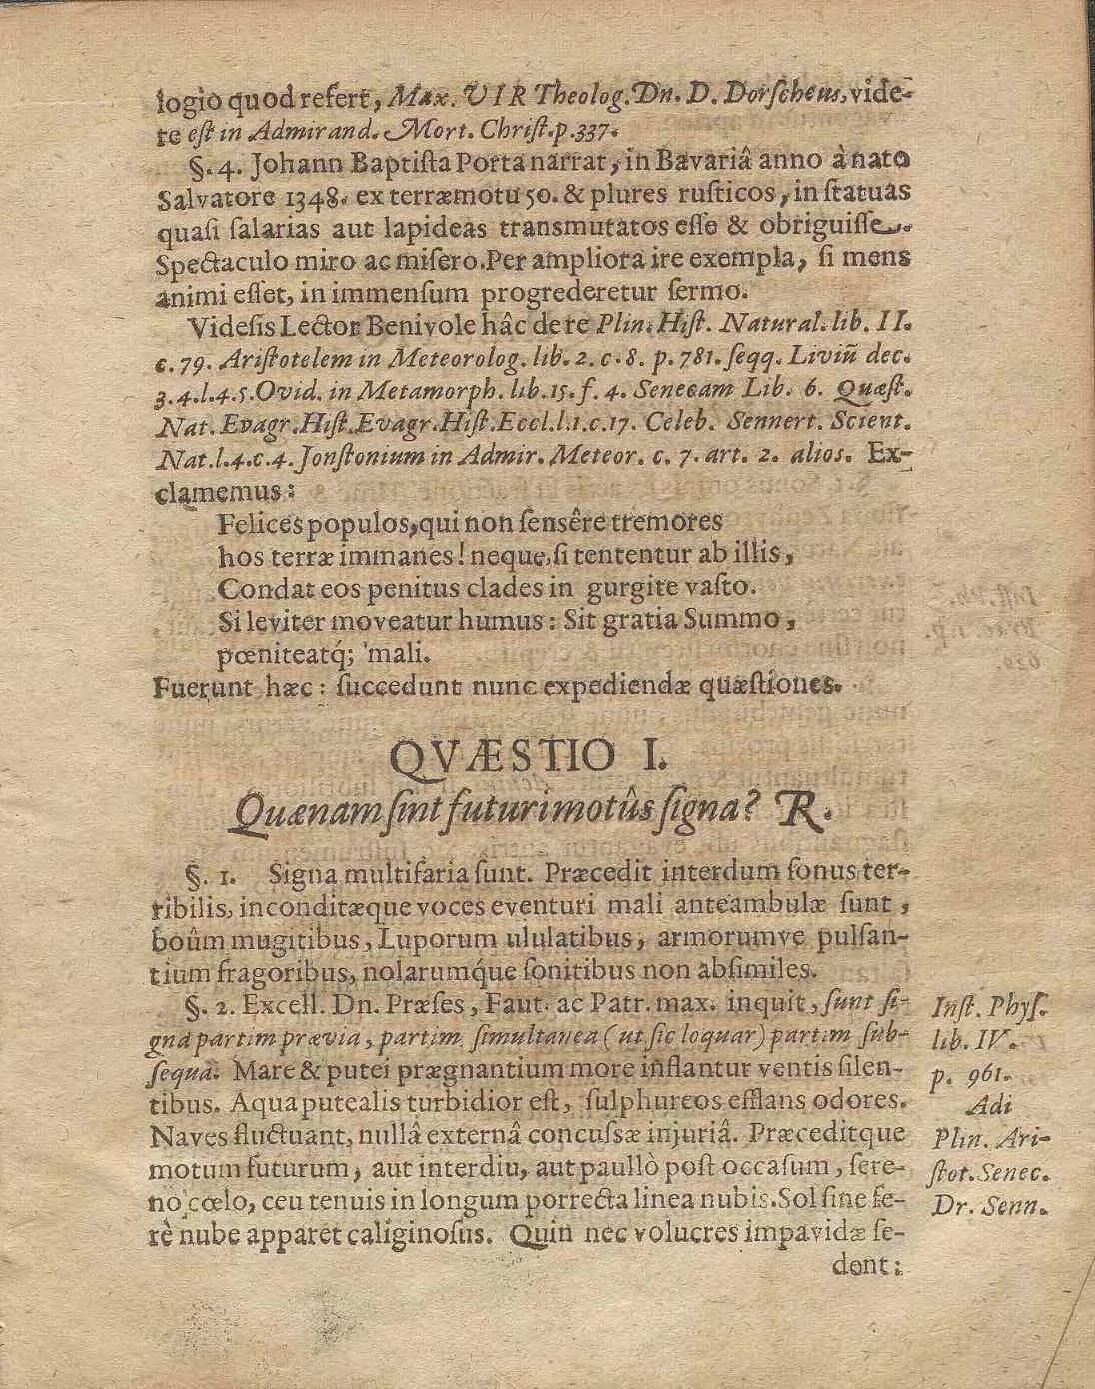 logio quod refert, Max. VIR Theolog. Dn. D. Dorſcheus, vide-
re eſt in Admirand. Mort. Chriſt. p. 337.
§. 4. Johann Baptiſta Porta narrat, in Bavariâ anno à nato
Salvatore 1348. ex terræmotu 50. & plures ruſticos, in ſtatuas
quaſi ſalarias aut lapideas transmutatos eſſe & obriguiſſe.
Spectaculo miro ac miſero. Per ampliora ire exempla, ſi mens
animi eſſet, in immenſum progrederetur ſermo.
Videſis Lector Benivole hâc de re Plin. Hiſt. Natural. lib. II.
c. 79. Ariſtotelem in Meteorolog. lib. 2. c. 8. p. 781. ſeqq. Liviũ dec.
3. 4. l. 4. 5. Ovid. in Metamorph. lib. 15. f. 4. Senecam Lib. 6. Quæſt.
Nat. Evagr. Hiſt. Evagr. Hiſt. Eccl. l. 1. c. 17. Celeb. Sennert. Scient.
Nat. l. 4. c. 4. Jonſtonium in Admir. Meteor. c. 7. art. 2. alios. Ex-
clamemus:
Felices populos, qui non ſensêre tremores
hos terræ immanes! neque, ſi tententur ab illis,
Condat eos penitus clades in gurgite vaſto.
Si leviter moveatur humus: Sit gratia Summo,
pœniteatq́; mali.
Fuerunt hæc: ſuccedunt nunc expediendæ quæſtiones.
QVÆSTIO I.
Quænam ſint futuri motûs ſigna? R.
§. 1. Signa multifaria ſunt. Præcedit interdum ſonus ter-
ribilis, inconditæque voces eventuri mali anteambulæ ſunt,
boûm mugitibus, Luporum ululatibus, armorumve pulſan-
tium fragoribus, nolarumq́ue ſonitibus non abſimiles.
§. 2. Excell. Dn. Præſes, Faut. ac Patr. max. inquit, ſunt ſi-
gna partim prævia, partim ſimultanea (ut ſic loquar) partim ſub-
ſequa. Mare & putei prægnantium more inflantur ventis ſilen-
tibus. Aqua putealis turbidior eſt, ſulphureos efflans odores.
Naves fluctuant, nullâ externâ concuſsæ injuriâ. Præceditque
motum futurum, aut interdiu, aut paullò poſt occaſum, ſere-
no cœlo, ceu tenuis in longum porrecta linea nubis. Sol ſine fe-
rè nube apparet caliginoſus. Quin nec volucres impavidæ ſe-
dent:
Inſt. Phyſ.
lib. IV.
p. 961.
Adi
Plin. Ari-
ſtot. Senec.
Dr. Senn.